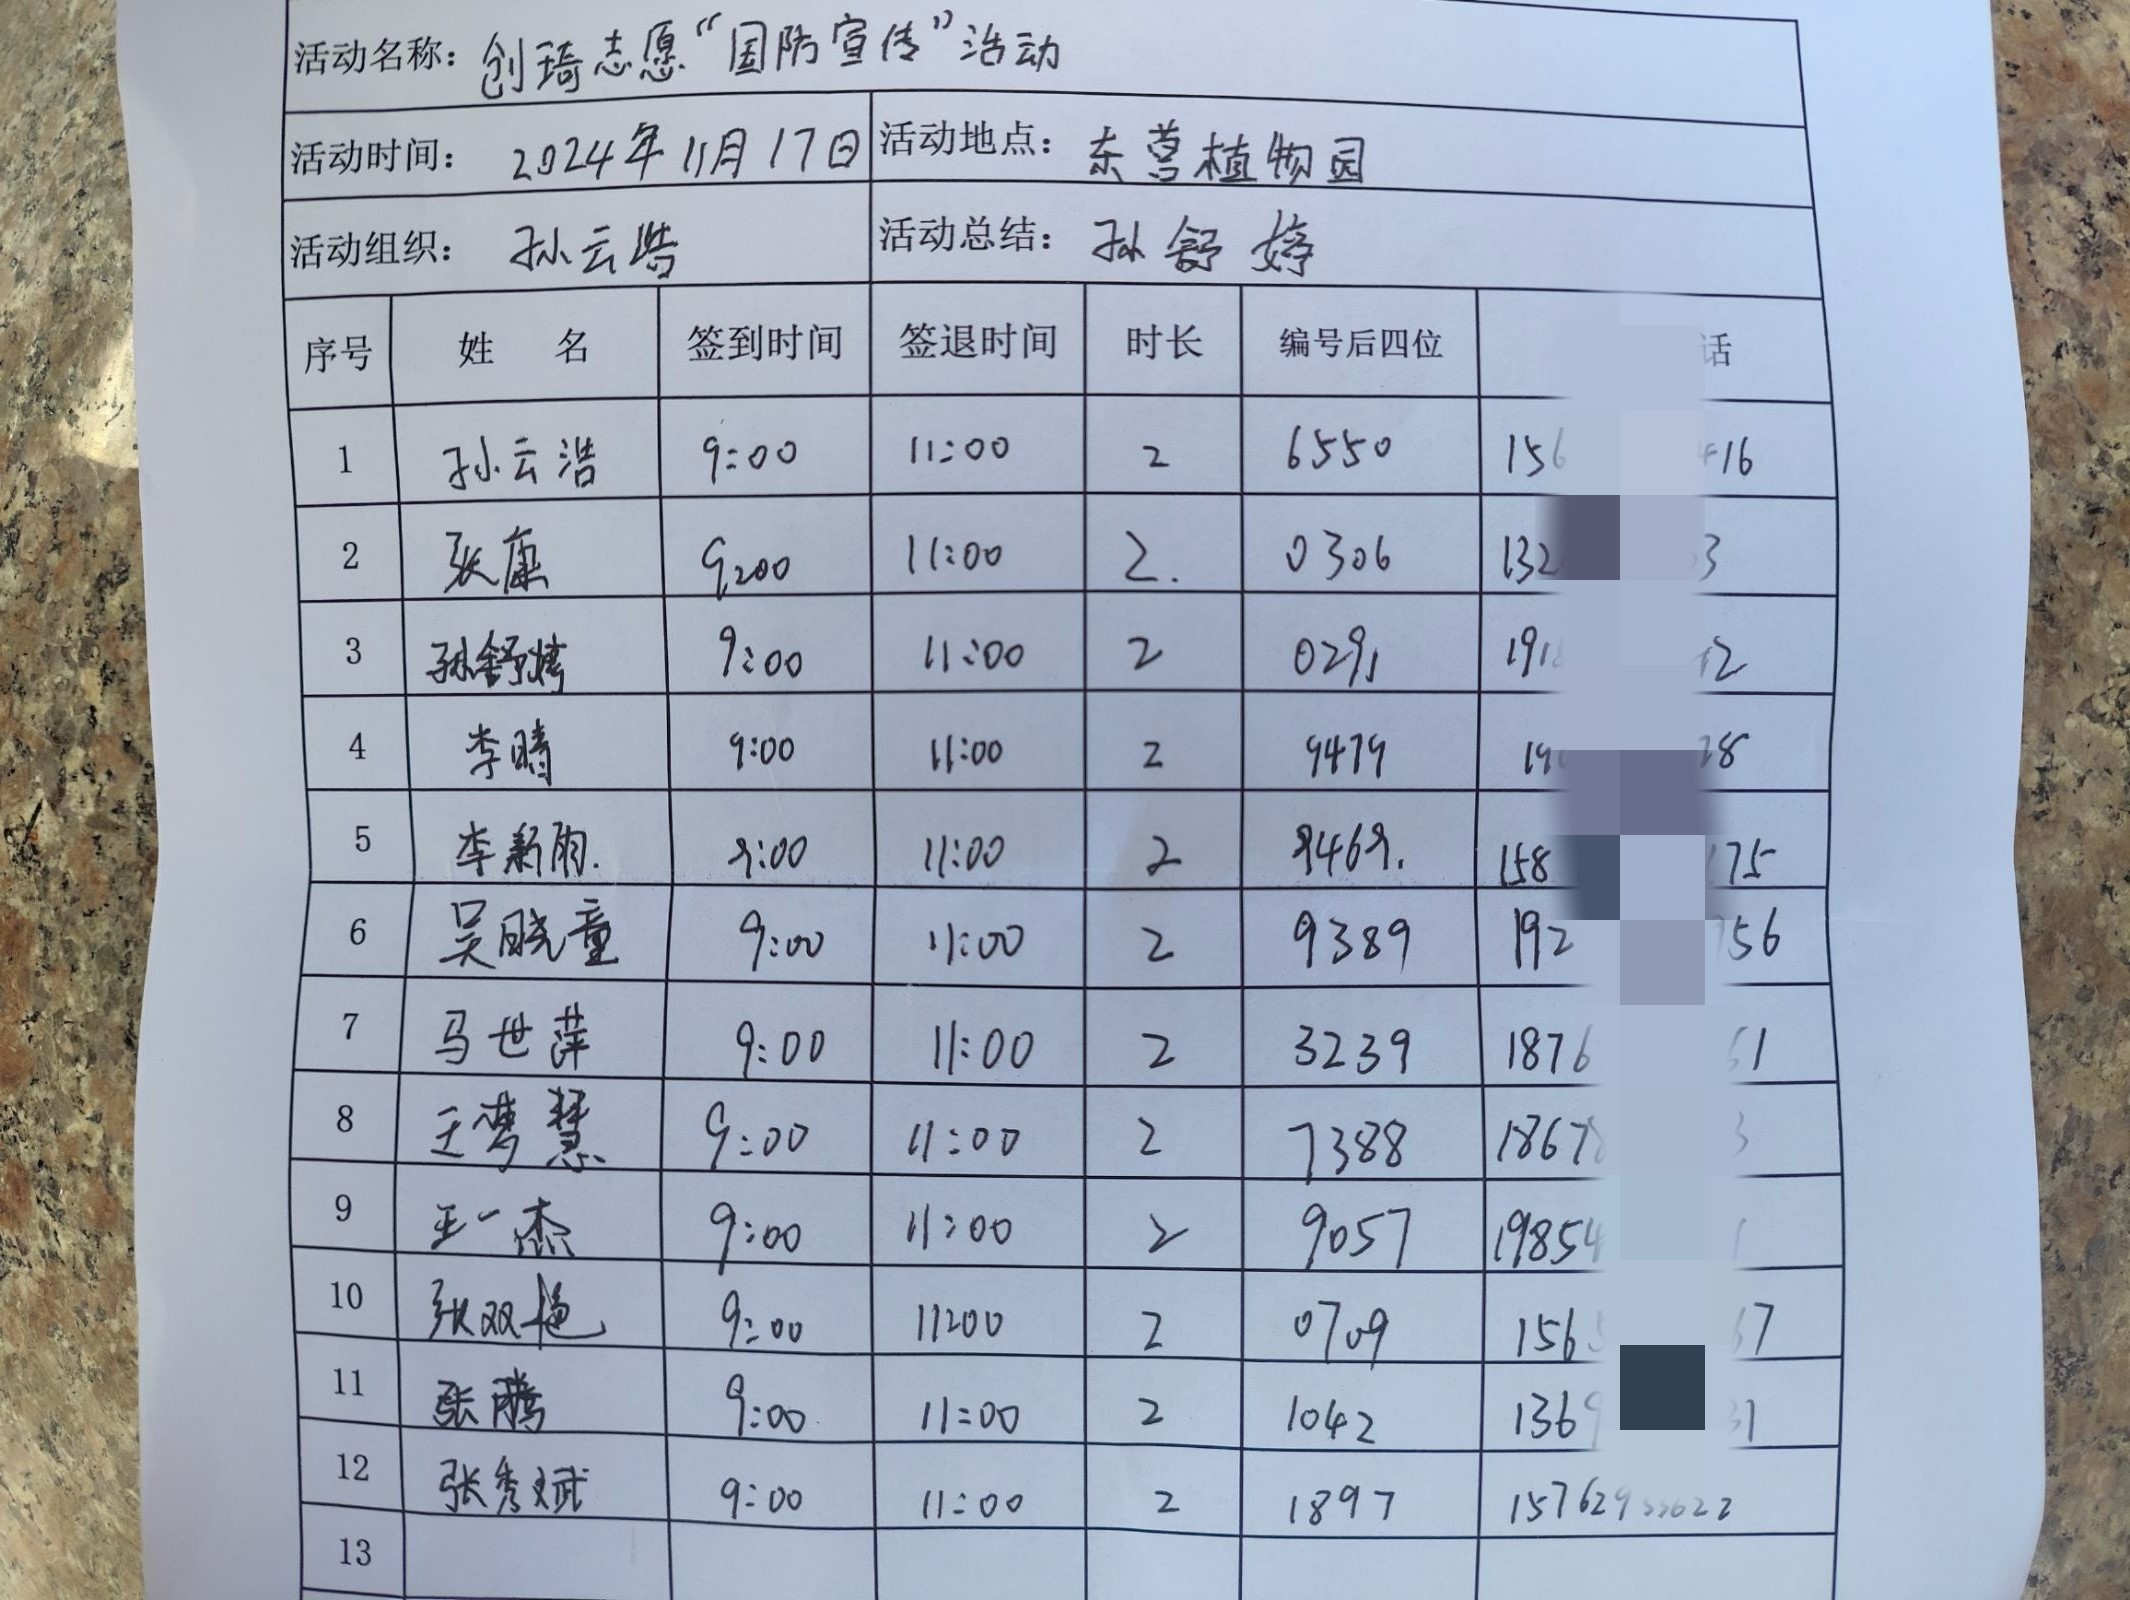 活动名称：创琦志愿“国防宣传”活动
活动时间：2024年11月17日 活动地点：东营植物园
活动组织：孙云浩 活动总结：孙舒婷
序号 姓名 签到时间 签退时间 时长 编号后四位 话
1 孙云浩 9:00 11:00 2 6550 156 416
2 张康 9:00 11:00 2. 0306 132 3
3 孙舒婷 9:00 11:00 2 0291 191 2
4 李晴 9:00 11:00 2 9479 19 28
5 李新雨. 9:00 11:00 2 9469. 158 175
6 吴晓童 9:00 11:00 2 9389 192 756
7 马世萍 9:00 11:00 2 3239 1876 61
8 王梦慧 9:00 11:00 2 7388 1867 3
9 王一杰 9:00 11:00 2 9057 19854
10 张双艳 9:00 11:00 2 0709 156 67
11 张腾 9:00 11:00 2 1042 1369 31
12 张秀斌 9:00 11:00 2 1897
13